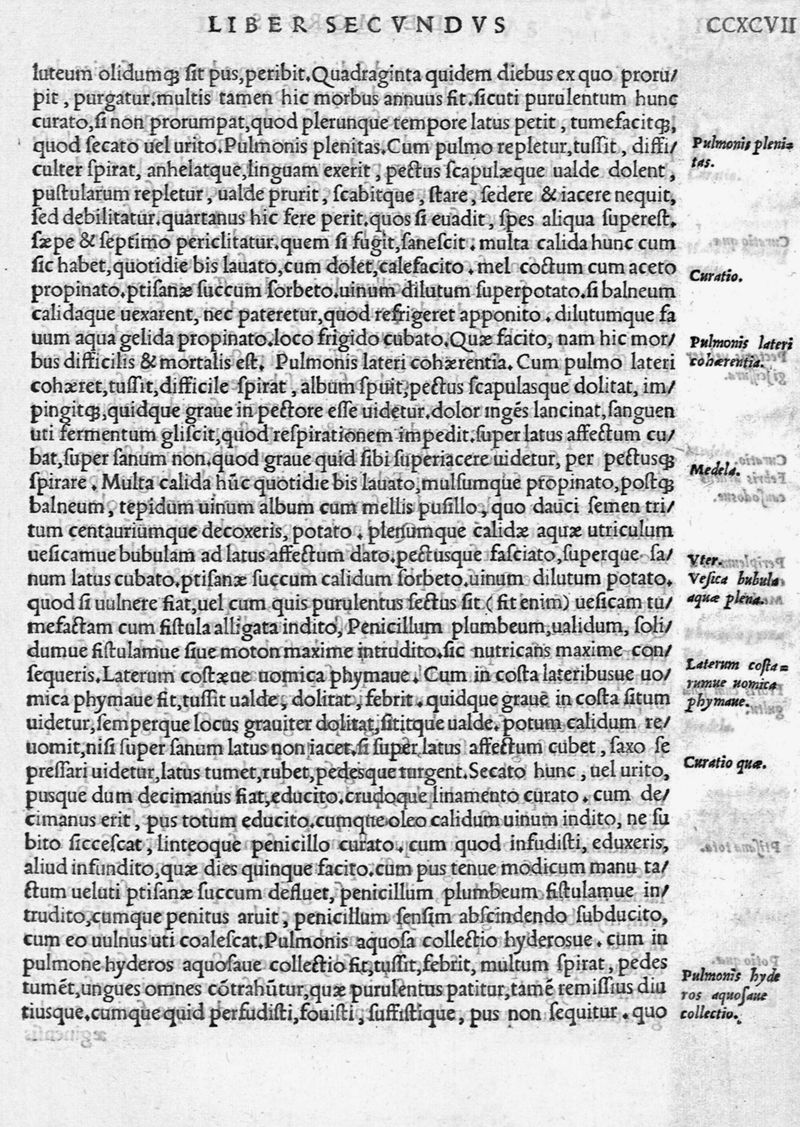 LIBER SECVNDVS CCXCVII
luteum olidumqꝫ sit pus,peribit.Quadraginta quidem diebus ex quo proru/
pit, purgatur.multis tamen hic morbus annuus fit.sicuti purulentum hunc
curato,si non prorumpat,quod plerunque tempore latus petit, tumefacitqꝫ,
quod secato uel urito.Pulmonis plenitas.Cum pulmo repletur,tussit, diffi/
culter spirat, anhelatque,linguam exerit, pectus scapulæque ualde dolent,
pustularum repletur, ualde prurit, scabitque, stare, sedere & iacere nequit,
sed debilitatur.quartanus hic fere perit,quos si euadit, spes aliqua superest.
sæpe & septimo periclitatur.quem si fugit,sanescit. multa calida hunc cum
sic habet,quotidie bis lauato,cum dolet,calefacito. mel coctum cum aceto
propinato.ptisanæ succum sorbeto.uinum dilutum superpotato.si balneum
calidaque uexarent, nec pateretur,quod refrigeret apponito. dilutumque fa
uum aqua gelida propinato.loco frigido cubato.Quæ facito, nam hic mor/
bus difficilis & mortalis est. Pulmonis lateri cohærentia. Cum pulmo lateri
cohæret,tussit,difficile spirat, album spuit,pectus scapulasque dolitat, im/
pingitqꝫ,quidque graue in pectore esse uidetur.dolor ingẽs lancinat,sanguen
uti fermentum gliscit,quod respirationem impedit.super latus affectum cu/
bat,super sanum non.quod graue quid sibi superiacere uidetur, per pectusqꝫ
spirare. Multa calida hũc quotidie bis lauato,mulsumque propinato,postqꝫ
balneum, tepidum uinum album cum mellis pusillo, quo dauci semen tri/
tum centauriumque decoxeris, potato. plerumque calidæ aquæ utriculum
uesicamue bubulam ad latus affectum dato.pectusque fasciato,superque sa/
num latus cubato.ptisanæ succum calidum sorbeto.uinum dilutum potato.
quod si uulnere fiat,uel cum quis purulentus sectus sit (fit enim) uesicam tu/
mefactam cum fistula alligata indito, Penicillum plumbeum,ualidum, soli/
dumue fistulamue siue moton maxime intrudito.sic nutricans maxime con/
sequeris.Laterum costæue uomica phymaue. Cum in costa lateribusue uo/
mica phymaue fit,tussit ualde, dolitat, febrit. quidque graue in costa situm
uidetur,semperque locus grauiter dolitat,sititque ualde.potum calidum re/
uomit,nisi super sanum latus non iacet.si super latus affectum cubet, saxo se
pressari uidetur,latus tumet,rubet,pedesque turgent.Secato hunc, uel urito,
pusque dum decimanus fiat,educito.crudoque linamento curato. cum de/
cimanus erit, pus totum educito.cumque oleo calidum uinum indito, ne su
bito siccescat, linteoque penicillo curato. cum quod infudisti, eduxeris,
aliud infundito,quæ dies quinque facito.cum pus tenue modicum manu ta/
ctum ueluti ptisanæ succum defluet, penicillum plumbeum fistulamue in/
trudito,cumque penitus aruit, penicillum sensim abscindendo subducito,
cum eo uulnus uti coalescat.Pulmonis aquosa collectio hyderosue. cum in
pulmone hyderos aquosaue collectio fit,tussit,febrit, multum spirat, pedes
tumẽt,ungues omnes cõtrahũtur,quæ purulentus patitur,tamẽ remissius diu
tiusque.cumque quid perfudisti,fouisti, suffistique, pus non sequitur. quo
Pulmonis pleni=
tas.
Curatio.
Pulmonis lateri
cohærentia.
Medela.
Vter.
Vesica bubula
aquæ plena.
Laterum costa=
rumue uomica
phymaue.
Curatio quæ.
Pulmonis hyde
ros aquosaue
collectio.